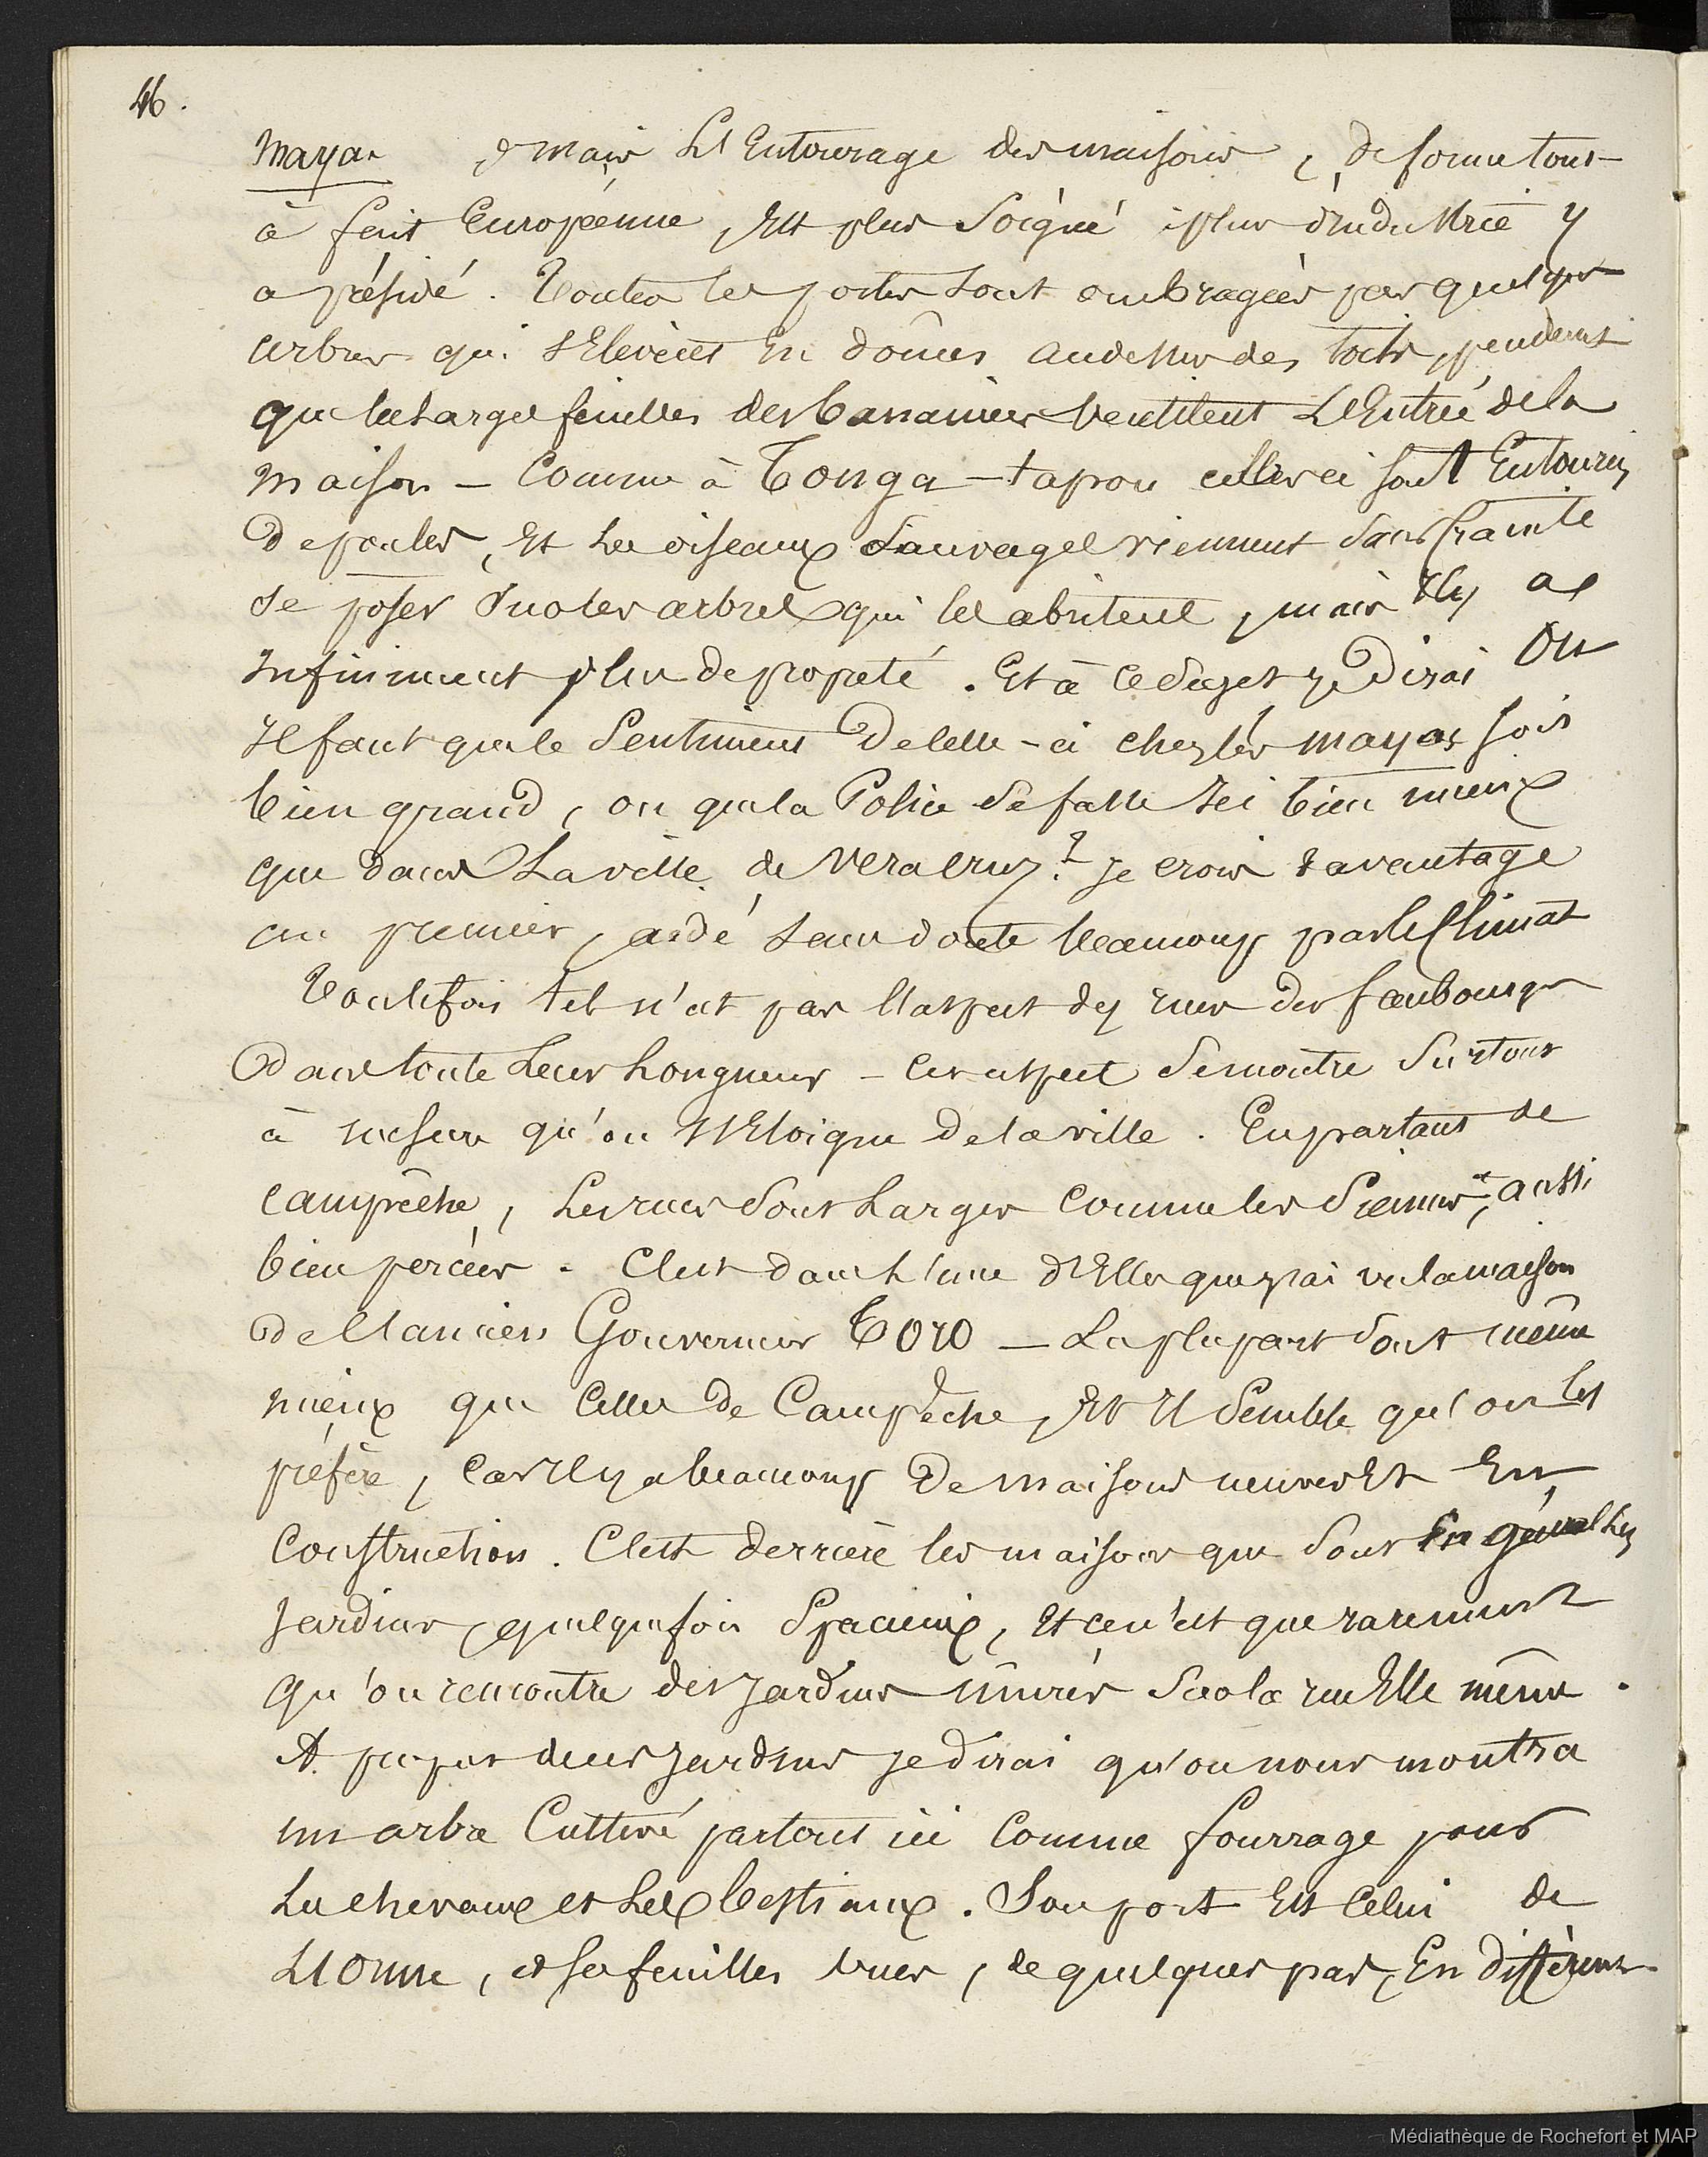 46.
mayas, mais l'Entourage des maisons, de forme tout-
à fait Européenne, Est plus Soigné, plus d'industrie y
a présidé. Toutes les portes sont ombragées par quelques
arbres qui s'Elèvent En dômes audessus des toits, pendant
que les larges feuilles des bananiers ventilent L'Entrée de la
maison - Comme à Tonga-tapou celles ci sont Entourées
de poules, Et les oiseaux Sauvages viennent sans crainte
se poser sur les arbres qui les abritent, mais Il y a
Infiniment plus de propreté. Et à ce sujet je dirai ou
Il faut que le Sentiment de celle-ci chez les mayas soit
bien grand, ou que la Police se fasse Ici bien mieux
que dans La ville de Veracruz ? je crois davantage
au premier, aidé sans doute beaucoup par le Climat
Toutefois tel n'est pas l'aspect des rues des faubourgs
Dans toute Leur Longueur - cet aspect se montre surtout
à mesure qu'on s'Eloigne de la ville. En partant de
Campêche, Les rues sont Larges comme les siennes, aussi
bien percées. C'est dans L'une d'Elles que j'ai vu la maison
de l'ancien Gouverneur Toro - La plupart sont même
mieux que Celles de Campêche, Et Il semble qu'on les
préfère, car Il y a beaucoup de maisons neuves Et En
Construction. C'est derrière les maisons que sont En général Les
Jardins, quelquefois Spacieux, Et ce n'est que rarement
qu'on rencontre des Jardins murés sur la rue Elle même.
A propos de ces Jardins je dirai qu'on nous montra
un arbre Cultivé partout ici Comme fourrage pour
Les chevaux et Les bestiaux. Son port Est Celui de
L'Orme, et ses feuilles vues, de quelques pas, En diffèrent
Médiathèque de Rochefort et MAP